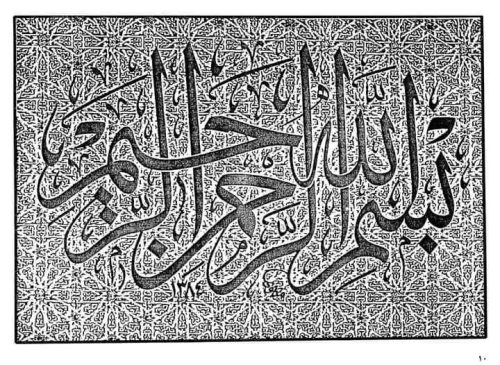 بسم الله الرحمن الرحيم
١٣٨٤
١٠